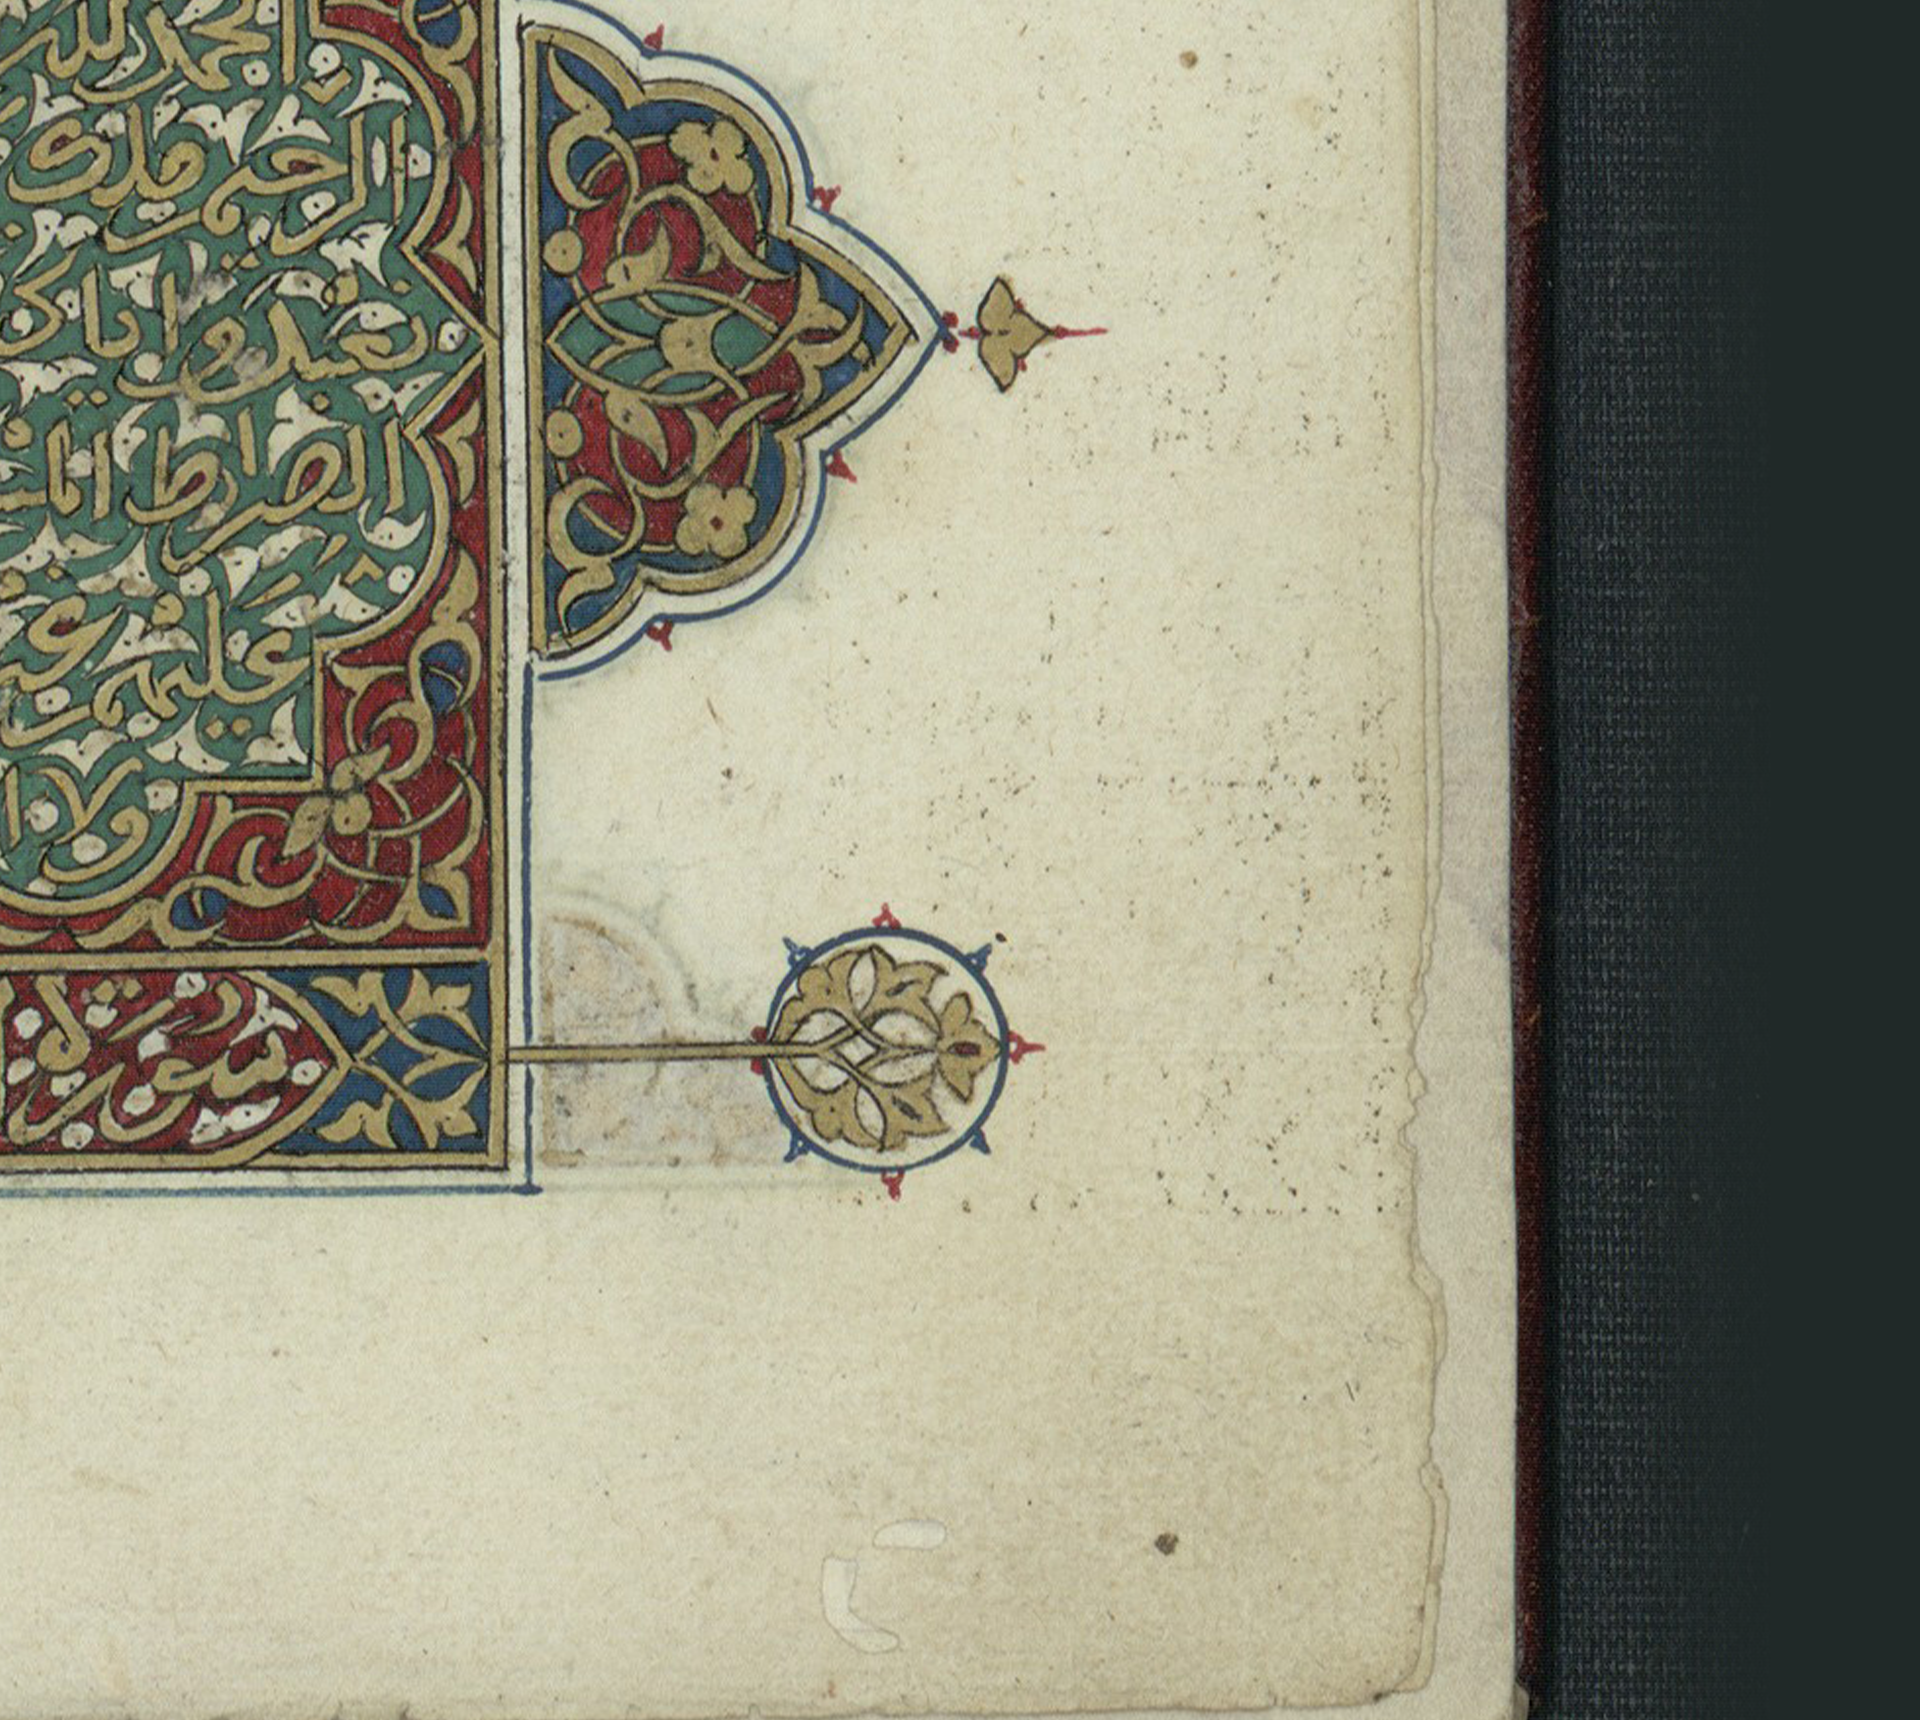 الحمد لله
الرحيم ملك
نعبد واياك
الصراط المس
عليهم غير
ولا ا
سورة